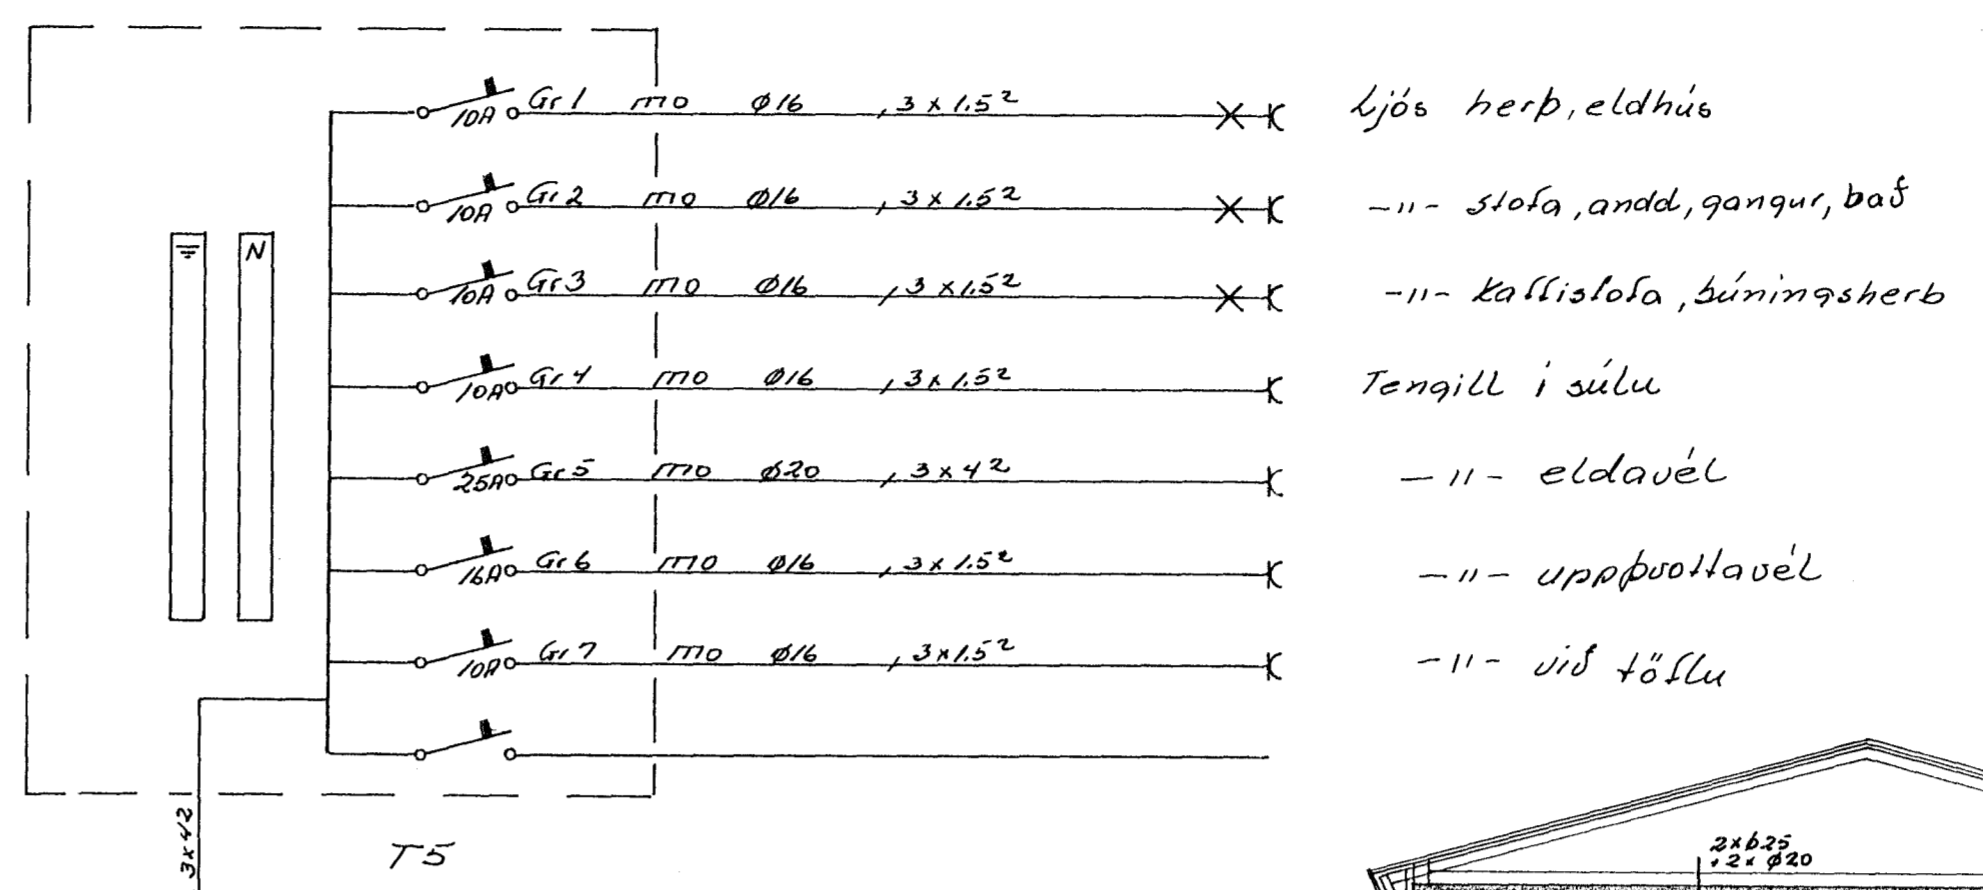 10A Gr 1 mo ø16 , 3 x 1.5² Ljós herþ, eldhús
10A Gr 2 mo ø16 , 3 x 1.5² -"- stofa, andd, gangur, bað
N
10A Gr 3 mo ø16 , 3 x 1.5² -"- kaffistofa, búningsherb
10A Gr 4 mo ø16 , 3 x 1.5² Tengill í súlu
25A Gr 5 mo ø20 , 3 x 4² -"- eldavél
16A Gr 6 mo ø16 , 3 x 1.5² -"- uppþvottavél
10A Gr 7 mo ø16 , 3 x 1.5² -"- við töflu
3x4²
T5
2xø25
+2x ø20